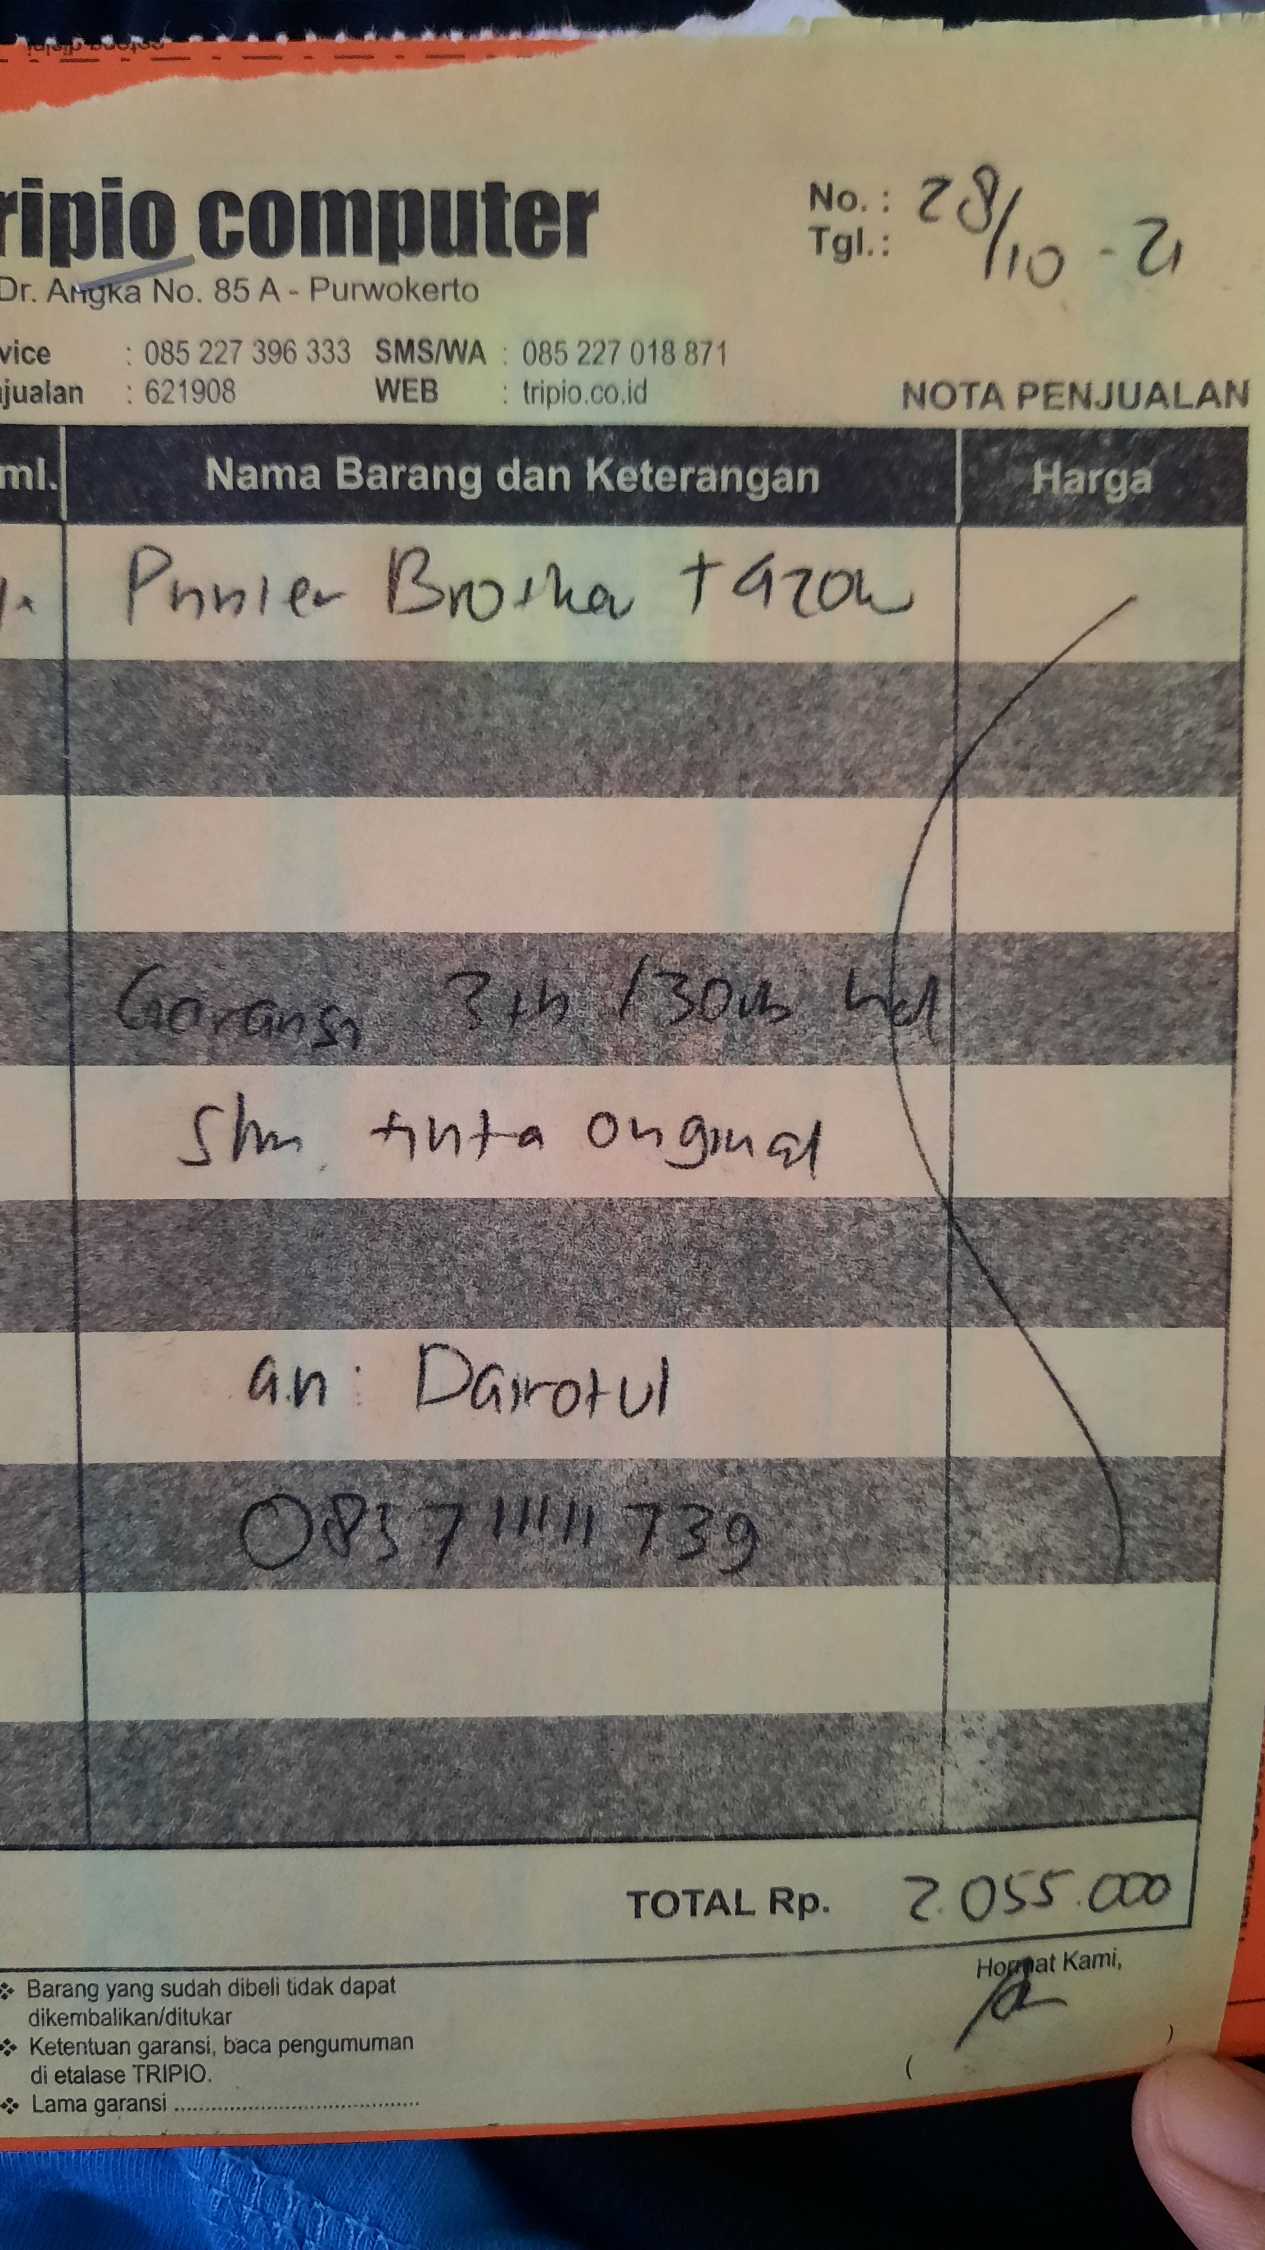 ripio computer
Dr. Angka No. 85 A - Purwokerto
No. :
Tgl. : 28/10 - 21
vice : 085 227 396 333 SMS/WA : 085 227 018 871
jualan : 621908 WEB : tripio.co.id
NOTA PENJUALAN
ml. Nama Barang dan Keterangan Harga
Printer Brother T920W
Garansi 3th /30rb hal
Slm tinta original
a.n : Dairotul
TOTAL Rp. 2.055.000
Hormat Kami,
( )
❖ Barang yang sudah dibeli tidak dapat
dikembalikan/ditukar
❖ Ketentuan garansi, baca pengumuman
di etalase TRIPIO.
❖ Lama garansi ........................................